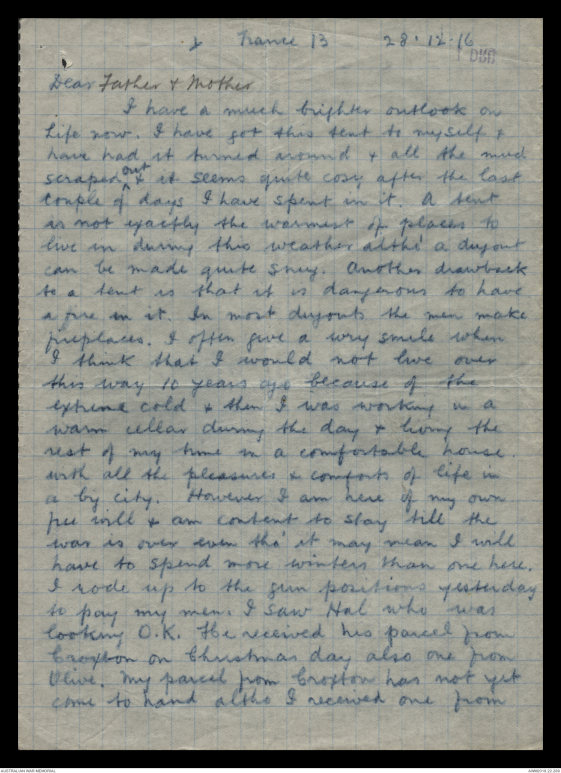 France 13 28.12.16
Dear Father & Mother
I have a much brighter outlook on
Life now. I have got this tent to myself &
have had it turned around & all the mud
scraped out & it seems quite cosy after the last
couple of days I have spent in it. A tent
is not exactly the warmest of places to
live in during this weather altho' a dugout
can be made quite snug. Another drawback
to a tent is that it is dangerous to have
a fire in it. In most dugouts the men make
fireplaces. I often give a wry smile when
I think that I would not live over
this way 10 years ago because of the
extreme cold & then I was working in a
warm cellar during the day & living the
rest of my time in a comfortable house.
with all the pleasures & comforts of life in
a big city. However I am here of my own
free will & am content to stay till the
war is over even tho' it may mean I will
have to spend more winters than one here.
I rode up to the gun positions yesterday
to pay my men. I saw Hal who was
looking O.K. He received his parcel from
Croxton on Christmas day also one from
Olive. My parcel from Croxton has not yet
come to hand altho I received one from
AUSTRALIAN WAR MEMORIAL